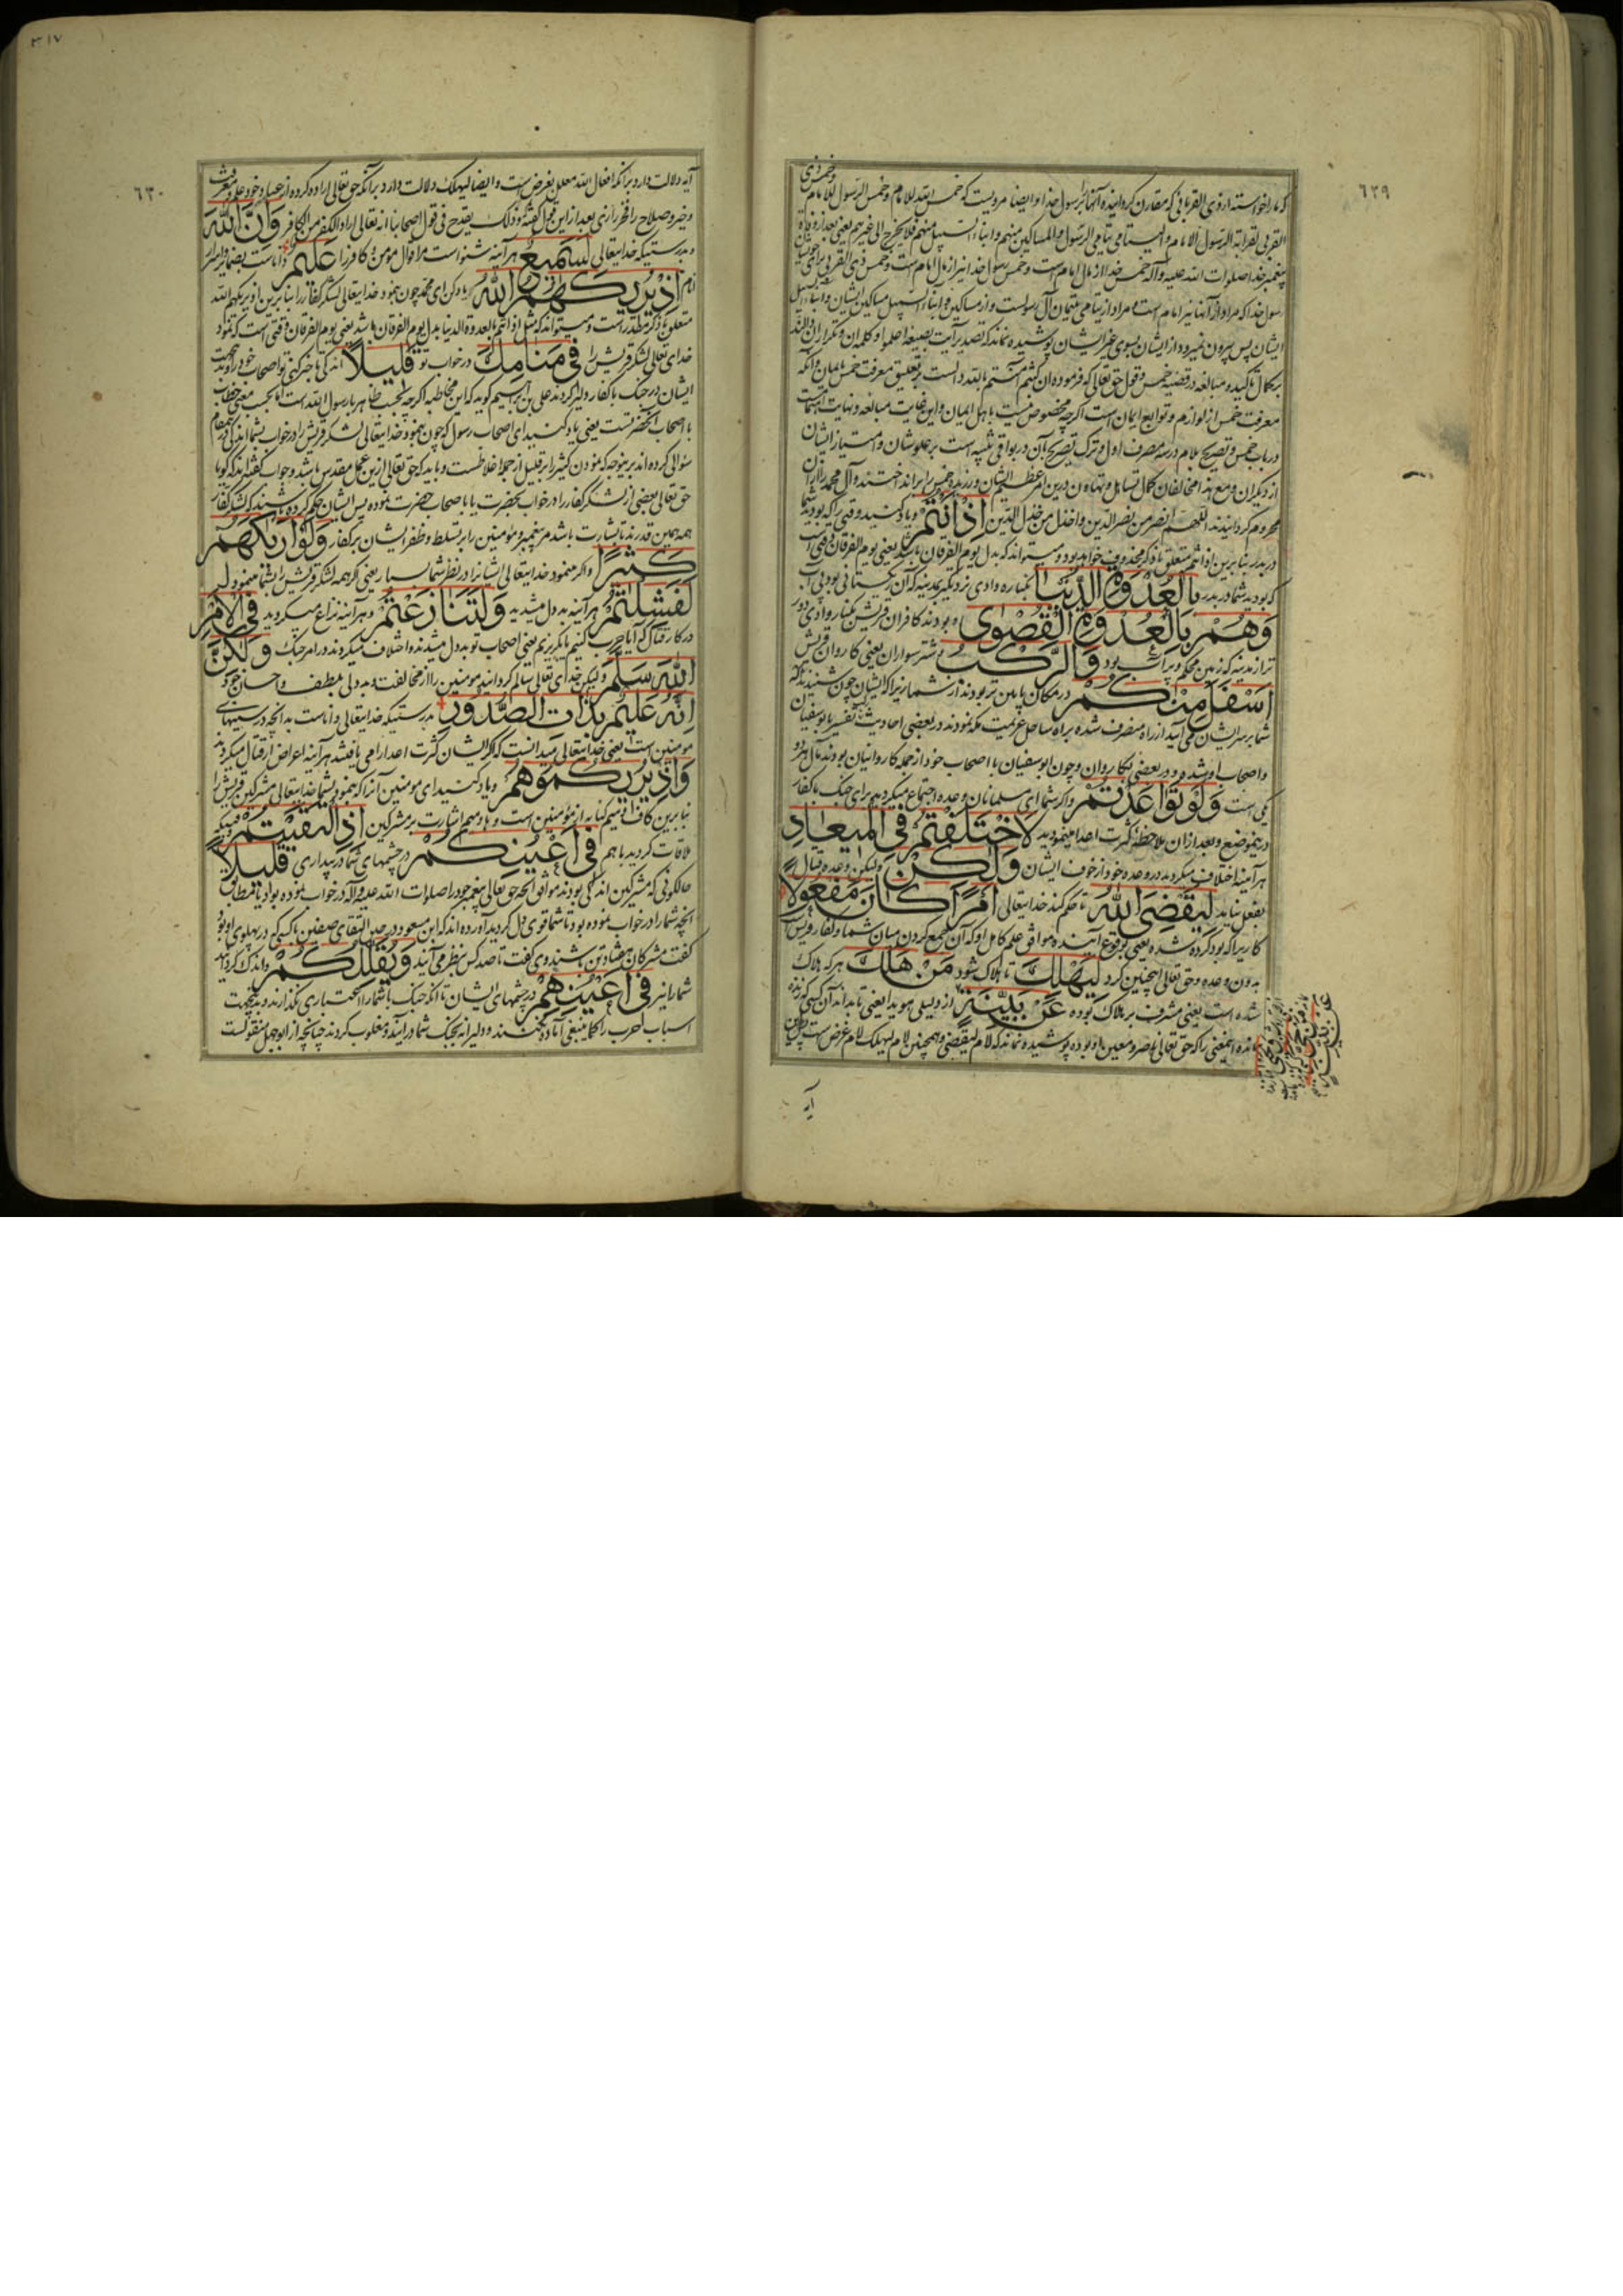 ٦٢٩
که ما را خواسته از ذی القربی
القربی لقرابة الرسول الامام والیتامی یتامی الرسول والمساکین منهم وابناء السبیل منهم فلا یخرج الی غیرهم یعنی بعد از وفات
پیغمبر خدا صلوات الله علیه وآله خمس خدا از مال امام است وخمس رسول خدا نیز از مال امام است وخمس ذی القربی
رسول خدا که مراد از آنها نیز امام است مراد از یتامی یتیمان آل رسولست واز مساکین وابناء السبیل مساکین ایشان وابناء السبیل
ایشان پس بیرون نمیرود از ایشان بسوی غیر ایشان پوشیده نماند که تصدیر آیت بصیغه اعلموا وکلمه ان وتکرار ان
برکمال تاکید ومبالغه در قضیه خمس وقول حق تعالی که فرموده ان کنتم آمنتم بالله دالست بر تعلیق معرفت خمس بایمان
معرفت خمس از لوازم وتوابع ایمان است اگرچه مخصوص نیست باهل ایمان واین غایت مبالغه ونهایت
در باب خمس وتصریح بلام در سه مصرف اول وترک تصریح بآن در بواقی تنبیه است بر علو شان وامتیاز ایشان
از دیگران ومع هذا مخالفان کمال تساهل وتهاون درین امر عظیم الشان ورزیده خمس را برانداختند وآل محمد را از ان
محروم گردانیدند اللهم انصر من نصر الدین واخذل من خذل الدین إِذْ أَنْتُمْ ویاد کنید وقتی را که بودید شما
در بدر بنابرین اذ انتم متعلق باذکر محذوف خواهد بود ومیتواند که بدل یوم الفرقان باشد یعنی یوم الفرقان وقتی است
که بودید شما در بدر بِالْعُدْوَةِ الدُّنْيَا بکناره وادی نزدیکتر بمدینه که آن ریگستانی بود بی آب
وَهُمْ بِالْعُدْوَةِ الْقُصْوَى وبودند کافران قریش بکنار وادی دور
تر از مدینه که زمین محکم وپرآب بود وَالرَّكْبُ وشتر سواران یعنی کاروان قریش
أَسْفَلَ مِنْكُمْ در مکان پایین تر بودند از شما زیرا که ایشان چون شنیدند که
شما بر سر ایشان می آیید از راه منصرف شده براه ساحل عزیمت مکه نمودند ودر بعضی احادیث تفسیر بابوسفیان
واصحاب او شده ودر بعضی بکاروان وچون ابوسفیان با اصحاب خود از جمله کاروانیان بودند مآل هر دو
یکی است وَلَوْ تَوَاعَدْتُمْ واگر شما ای مسلمانان وعده اجتماع میکردید برای جنگ با کفار
درین موضع وبعد از ان ملاحظه کثرت اعدا مینمودید لَاخْتَلَفْتُمْ فِي الْمِيعَادِ
هر آینه اختلاف میکردید در وعده خود از خوف ایشان وَلَكِنْ ولیکن وعده قتال
بفعل نیامد لِيَقْضِيَ اللَّهُ تا حکم کند خدایتعالی أَمْرًا كَانَ مَفْعُولًا
کاریرا که بود کرده شده یعنی بوقوع آینده موافق علم کامل او که آن جمع کردن میان شما وکفار قریش
بدون وعده وحق تعالی اینچنین کرد لِيَهْلِكَ تا هلاک شود مَنْ هَلَكَ هر که هلاک
شده است یعنی مشرف بر هلاک بوده عَنْ بَيِّنَةٍ از دلیلی هویدا یعنی تا بداند آن کسی که زنده
مانده اینمعنی را که حق تعالی ناصر ومعین او بوده پوشیده نماند که لام لیقضی وهمچنین لام لیهلک لام غرض است
آیه
٣١٧
٦٣٠
آیه دلالت دارد بر آنکه افعال الله معلل بغرض است وایضا لیهلک دلالت دارد بر آنکه حق تعالی اراده کرده از عباد خود علم ومعرفت
وخیر وصلاح را فخر رازی بعد از این قول گفته وذلک یقدح فی قول اصحابنا انه تعالی اراد الکفر من الکافر وَإِنَّ اللَّهَ
وبدرستیکه خدایتعالی لَسَمِيعٌ هر آینه شنواست مر اقوال مؤمن وکافر را عَلِيمٌ داناست بضمایر
إِذْ يُرِيكَهُمُ اللَّهُ یاد کن ای محمد چون بنمود خدایتعالی لشکر کفار را بنابرین اذ یریکهم الله
متعلق باذکر مقدر است ومیتواند که مثل اذ انتم بالعدوة الدنیا بدل یوم الفرقان باشد یعنی یوم الفرقان وقتی است که نمود
خدای تعالی لشکر قریش را فِي مَنَامِكَ در خواب تو قَلِيلًا اندکی تا خبر کنی تو اصحاب خود را وبدینجهت
ایشان در جنگ با کفار دلیر کردند علی بن ابراهیم گوید که این مخاطبه اگرچه بحسب ظاهر با رسول الله است اما بحسب معنی خطاب
با اصحاب آنحضرتست یعنی یاد کنید ای اصحاب رسول که چون بنمود خدایتعالی لشکر قریش را در خواب بشما اندکی
سؤالی کرده اند برینوجه که نمودن کثیر را بر قلیل از جمله اغلاطست وباید که حق تعالی ازین عمل مقدس باشد وجواب گفته اند که گویا
حق تعالی بعضی از لشکر کفار را در خواب بحضرت یا باصحاب حضرت نموده پس ایشان حکم کرده باشند که لشکر کفار
همه همین قدرند تا بشارت باشد مر پیغمبر ومؤمنین را بر تسلط وظفر ایشان بر کفار وَلَوْ أَرَاكَهُمْ
كَثِيرًا واگر مینمود خدایتعالی ایشانرا در نظر شما بسیار یعنی اگر همه لشکر قریش را بشما مینمود
لَفَشِلْتُمْ هر آینه بددل میشدید وَلَتَنَازَعْتُمْ وهر آینه نزاع میکردید فِي الْأَمْرِ
در کار قتال که آیا حرب کنیم یا بگریزیم یعنی اصحاب تو بددل میشدند واختلاف میکردند در امر جنگ وَلَكِنَّ
اللَّهَ سَلَّمَ ولیکن خدای تعالی سالم گردانید مؤمنین را از مخالفت وبددلی بلطف واحسان خود
إِنَّهُ عَلِيمٌ بِذَاتِ الصُّدُورِ بدرستیکه خدایتعالی داناست بدانچه در سینهای
مؤمنین است یعنی خدایتعالی میدانست که اگر ایشان کثرت اعدا را می یافتند هر آینه اعراض از قتال میکردند
وَإِذْ يُرِيكُمُوهُمْ ویاد کنید ای مؤمنین آنرا که بنمود بشما خدایتعالی مشرکین قریش را
بنابرین کاف ومیم کنایه از مؤمنین است وها ومیم اشارت بر مشرکین إِذِ الْتَقَيْتُمْ وقتیکه
ملاقات کردید با هم فِي أَعْيُنِكُمْ در چشمهای شما در بیداری قَلِيلًا
حالکونی که مشرکین اندکی بودند موافق آنچه حق تعالی پیغمبر خود را صلوات الله علیه وآله در خواب نموده بود یا مطابق
آنچه شما را در خواب نموده بود تا شما قوی دل گردید آورده اند که ابن مسعود در حین التقای صفین با کسی که در پهلوی او بود
گفت مشرکان هفتاد تن باشند وی گفت تا صد کس بنظر می آیند وَيُقَلِّلُكُمْ واندک گردانید
شما را نیز فِي أَعْيُنِهِمْ در چشمهای ایشان تا آنکه جنگ با شما را سخت بازی نگذارند وبدینجهت
اسباب حرب را کما ینبغی آماده نکنند ودلیرانه بجنگ شما درآیند ومغلوب گردند چنانچه از ابوجهل منقولست